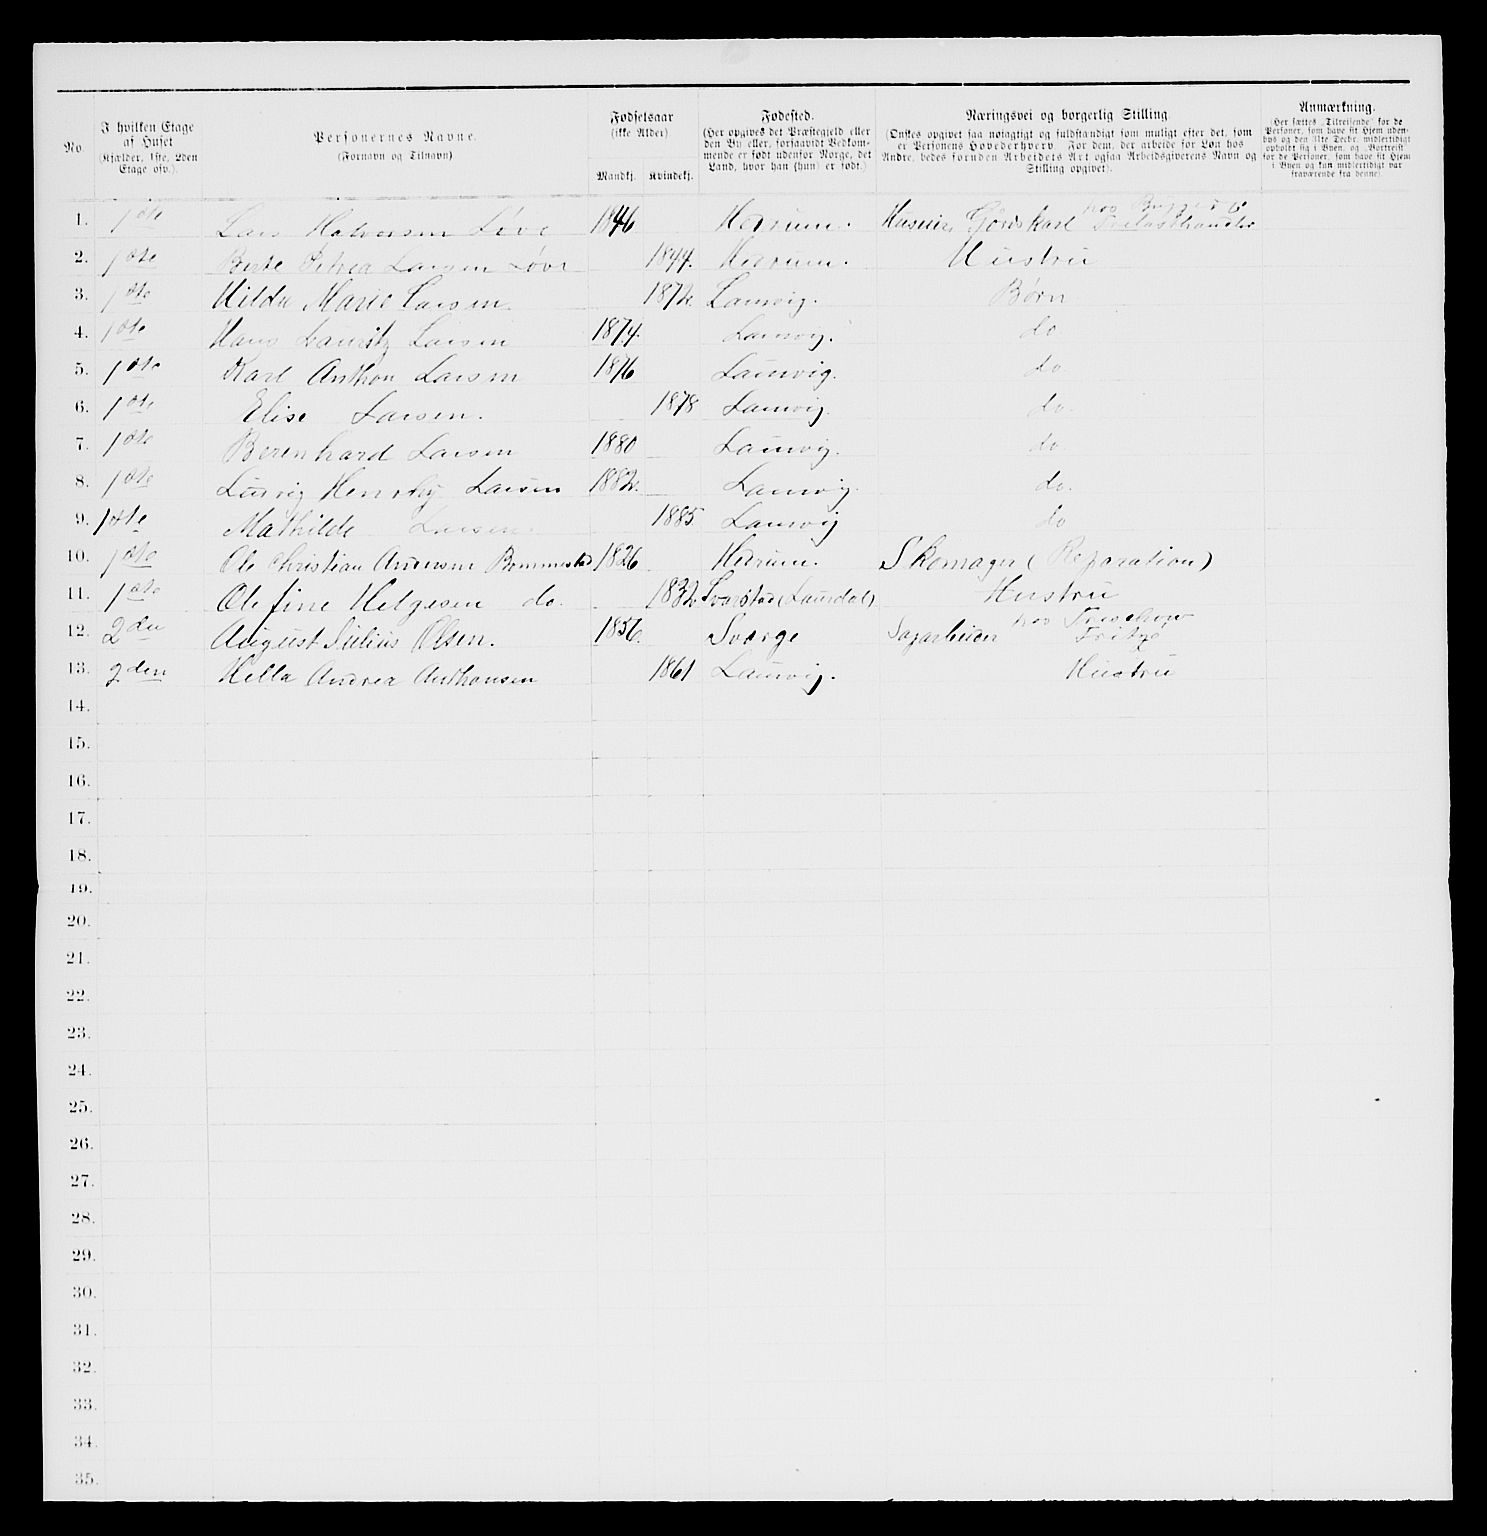 No.
I hvilken Etage
af Huset
(Kjælder, 1ste, 2den
Etage osv.).
Personernes Navne.
(Fornavn og Tilnavn)
Fødselsaar
(ikke Alder)
Mandkj. Kvindekj.
Fødested.
(Her opgives det Præstegjeld eller
den By eller, forsaavidt Vedkom-
mende er født udenfor Norge, det
Land, hvor han (hun) er født.)
Næringsvei og borgerlig Stilling.
(Ønskes opgivet saa nøiagtigt og fuldstændigt som muligt efter det, som
er Personens Hovederhverv. For dem, der arbeide for Løn hos
Andre, bedes foruden Arbeidets Art ogsaa Arbeidsgiverens Navn og
Stilling opgivet).
Anmærkning.
(Her sættes „Tilreisende“ for de
Personer, som have sit Hjem uden-
bys og den 31te Decbr. midlertidigt
opholdt sig i Byen, og „Bortreist“
for de Personer, som have sit Hjem
i Byen og kun midlertidigt var
fraværende fra denne).
1. 1ste Lars Halversen Løve 1846 Hedrum. Huseier, Gårdskarl hos Bugge &
Trælasthandler
2. 1ste Berte Petrea Larsen Løve 1844. Hedrum. Hustru
3. 1ste Hilda Marie Larsen 1872. Laurvig. Børn
4. 1ste Hans Lauritz Larsen 1874. Laurvig. do
5. 1ste Karl Anthon Larsen 1876 Laurvig. do.
6. 1ste Elise Larsen. 1878 Laurvig. do.
7. 1ste Berenhard Larsen 1880 Laurvig. do
8. 1ste Ludvig Larsen 1882. Laurvig. do.
9. 1ste Mathilde Larsen 1885 Laurvig do
10. 1ste Ole Christian Andersen Bommestad 1826 Hedrum. Skomager (Reparation)
11. 1ste Ole fine Helgesen do. 1832 Svarstad (Laurdal) Hustru
12. 2den August Julius Olsen. 1856. Sverge Sagarbeider hos Treschow
Fritzø
13. 2den Hella Andrea Anthonsen 1861 Laurvig. Hustru
14.
15.
16.
17.
18.
19.
20.
21.
22.
23.
24.
25.
26.
27.
28.
29.
30.
31.
32.
33.
34.
35.